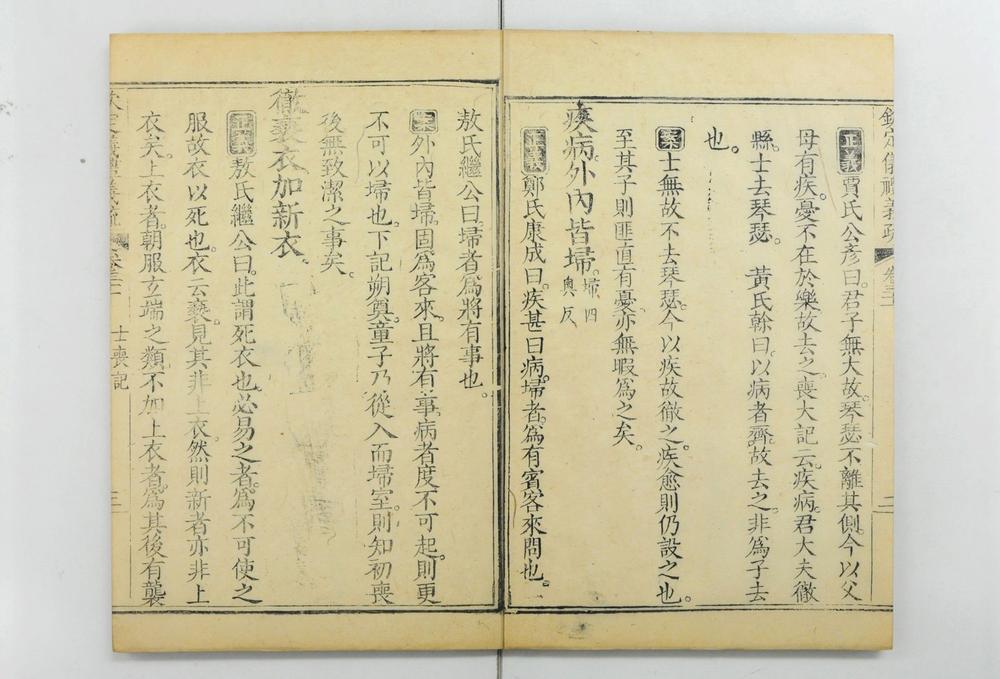 欽定儀禮義疏 卷三十一 二
正義賈氏公彥曰。君子無大故。琴瑟不離其側。今以父
母有疾。憂不在於樂。故去之。喪大記云。疾病。君大夫徹
縣。士去琴瑟。 黃氏榦曰。以病者齊。故去之。非爲子去
也。
案士無故不去琴瑟。今以疾故徹之。疾愈則仍設之也。
至其子則匪直有憂。亦無暇爲之矣。
疾病。外內皆埽。埽四奧反
正義鄭氏康成曰。疾甚曰病。埽者。爲有賓客來問也。
敖氏繼公曰。埽者。爲將有事也。
案外內皆埽。固爲客來。且將有事。病者度不可起。則更
不可以埽也。下記朔奠。童子乃從入而埽室。則知初喪
後無致潔之事矣。
徹褻衣。加新衣。
正義敖氏繼公曰。此謂死衣也。必易之者。爲不可使之
服故衣以死也。衣云褻。見其非上衣。然則新者亦非上
衣矣。上衣者。朝服玄端之類。不加上衣者。爲其後有襲
欽定儀禮義疏 卷三十一 士喪記 三